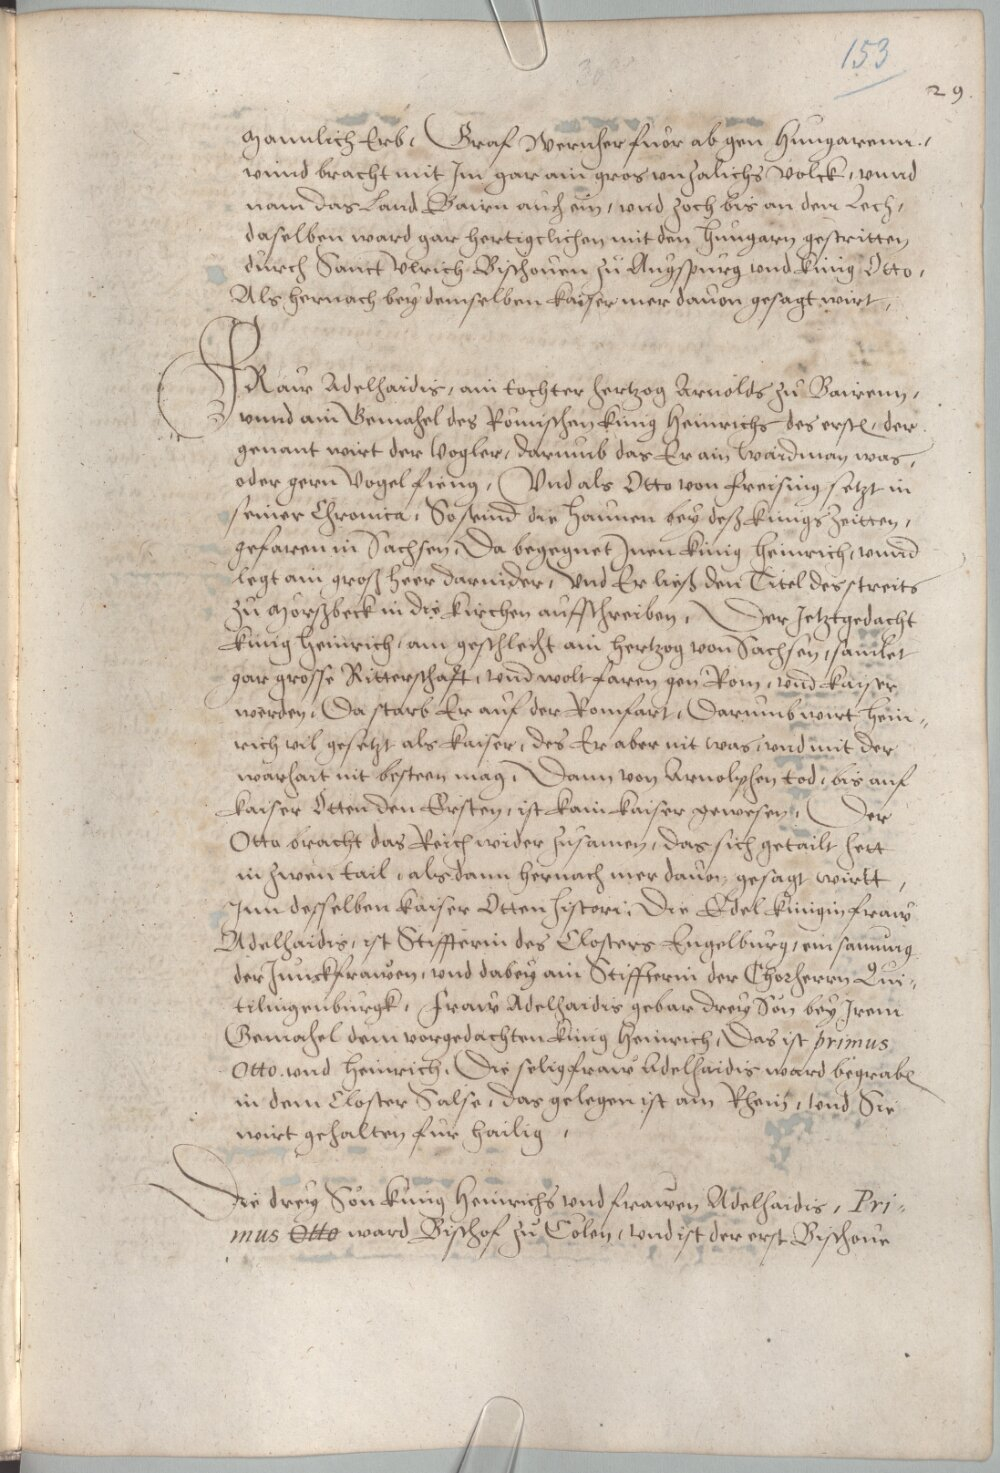 153
29.
Mannlich Erb, Graf Wernher fuor ab gen Hungarenn,
vnnd bracht mit Im gar ain gros vnzalichs Volck, vnnd
nam das Land Bairn auch ein, vnd zoch bis an den Lech,
daselben ward gar hertigclichen mit den Hungarn gestritten
durch Sanct Vlrich Bischouen zu Augspurg vnd kunig Otto,
Als hernach bey demselben kaiser mer dauon gesagt wirt,
FRaw Adelhaidis, ain tochter hertzog Arnolds zu Bairenn,
vnnd ain Gemahel des Romischen kunig Heinrichs des erste, der
genant wirt der Vogler, darumb das Er ain waidman was,
oder gern Vogel fieng, Vnd als Otto von freising setzt in
seiner Chronica, So seind die Haunen bey desz kungs Zeitten,
gefaren in Sachsen, Da begegnet Inen kinig Heinrich, vnnd
legt ain grosz heer darnider, Vnd Er liesz den Titel des streits
zu Morszbeck in die kirchen auffschreiben, Der Jetztgedacht
kunig Heinrich, am geschlecht ain hertzog von Sachsen, samlet
gar grosse Ritterschafft, vnnd wolt faren gen Rom, vnd kayser
werden, Da starb Er auf der Romfart, Darumb wirt Hein-
rich vil gesetzt als kaiser, des Er aber nit was, vnd mit der
warhait nit besteen mag, Dann von Arnolphen tod, bis auf
kaiser Otten den Ersten, ist kain kaiser gewesen, Der
Otto bracht das Reich wider zusamen, das sich getailt hett
in zwen tail, als dann hernach mer dauon gesagt wirtt,
Inn desselben kaiser Otten histori, Die Edel kunigin fraw
Adelhaidis, ist Stiffterin des Closters Engelburg, ein samung
der Junckfrawen, vnd dabey ain Stiffterin der Chorherrn Qui-
tilingenburgk, fraw Adelhaidis gebar drey Son bey Irem
Gemahel dem vorgedachten kunig Heinrich, Das ist primus
Otto vnd Heinrich, Die selig fraw Adelhaidis ward begrabe
in dem Closter Salse, das gelegen ist am Rhein, vnd Sie
wirt gehalten fur hailig,
Die drey Son kunig Heinrichs vnd frawen Adelhaidis, Pri-
mus Otto ward Bischof zu Cölen, vnd ist der erst Bischoue